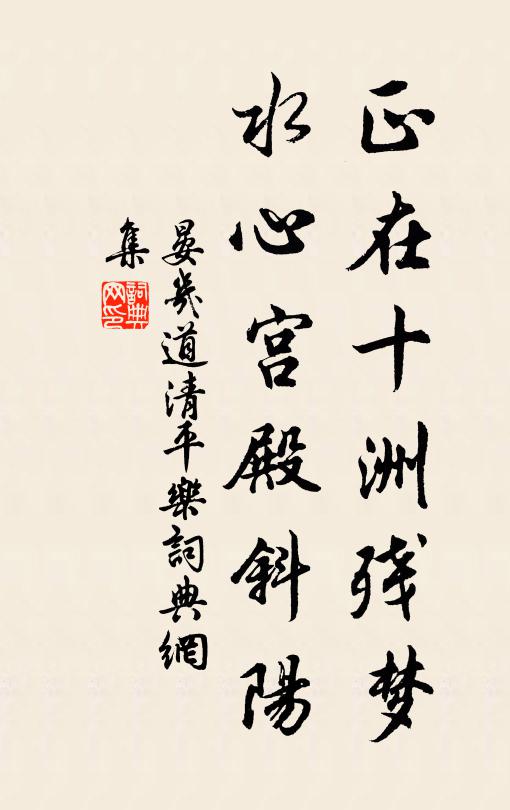 正在十洲残梦
水心宫殿斜陽
晏幾道清平樂詞典網
集
詞典網印